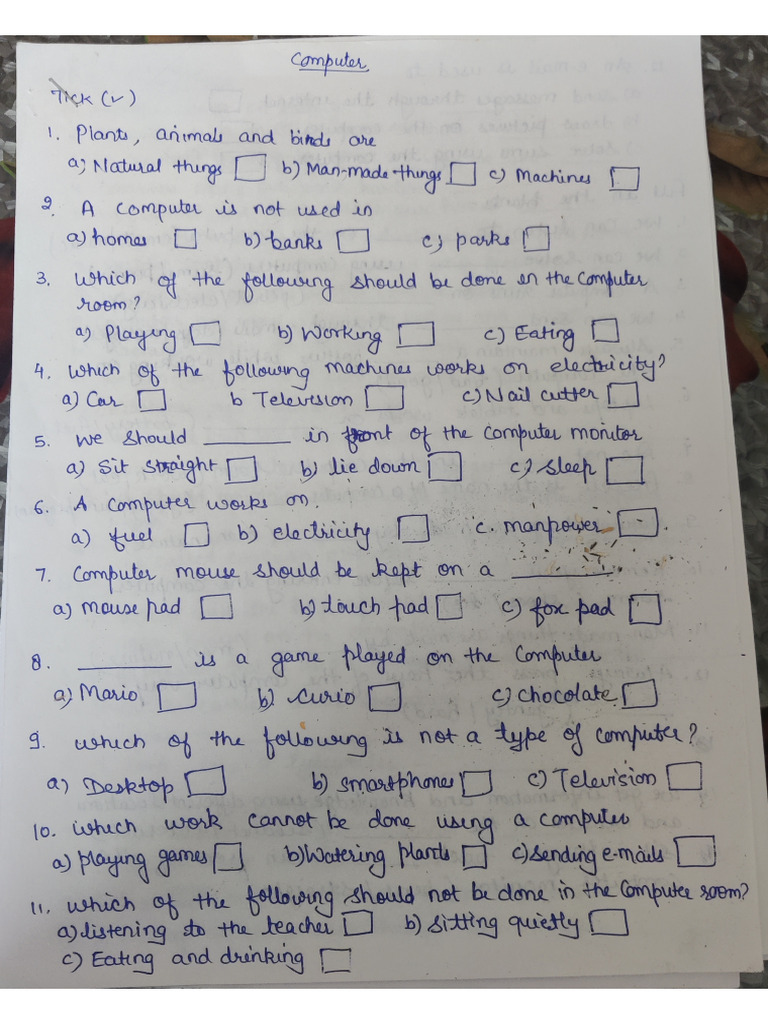 Computer
Tick (✓)
1. Plants, animals and birds are
a) Natural things b) Man-made things c) Machines
2. A computer is not used in
a) homes b) banks c) parks
3. Which of the following should be done in the computer
room?
a) Playing b) Working c) Eating
4. Which of the following machines works on electricity?
a) Car b Television c) Nail cutter
5. We should ________ in front of the computer monitor
a) Sit straight b) lie down c) sleep
6. A computer works on.
a) fuel b) electricity c. manpower
7. Computer mouse should be kept on a ________
a) mouse pad b) touch pad c) fox pad
8. ________ is a game played on the computer
a) Mario b) curio c) chocolate
9. which of the following is not a type of computer?
a) Desktop b) smartphones c) Television
10. which work cannot be done using a computer
a) playing games b) Watering plants c) sending e-mails
11. which of the following should not be done in the computer room?
a) listening to the teacher b) sitting quietly
c) Eating and drinking